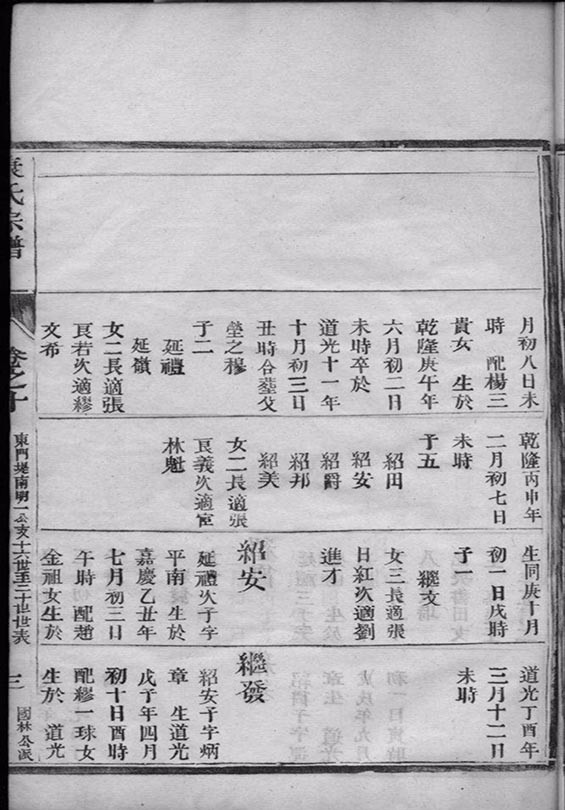 月初八日未
時 配楊三
貴女 生於
乾隆庚午年
六月初二日
未時卒於
道光十一年
十月初三日
丑時合塟父
塋之穆
子二
延禮
延嶺
女二長適張
良若次適繆
文希
乾隆丙申年
二月初七日
未時
子五
紹田
紹安
紹爵
紹邦
紹美
女二長適張
良義次適宦
林魁
生同庚十月
初一日戌時
子一
繼文
女三長適張
日紅次適劉
進才
紹安
延禮次子字
平南生於
嘉慶乙丑年
七月初三日
午時 配趙
金祖女生於
道光丁酉年
三月十二日
未時
繼發
紹安子字炳
章 生道光
戊子年四月
初十日酉時
配繆一球女
生於 道光
袁氏宗譜
卷之十
東門堤南明一公支十六世至二十世世表
三
國林公派